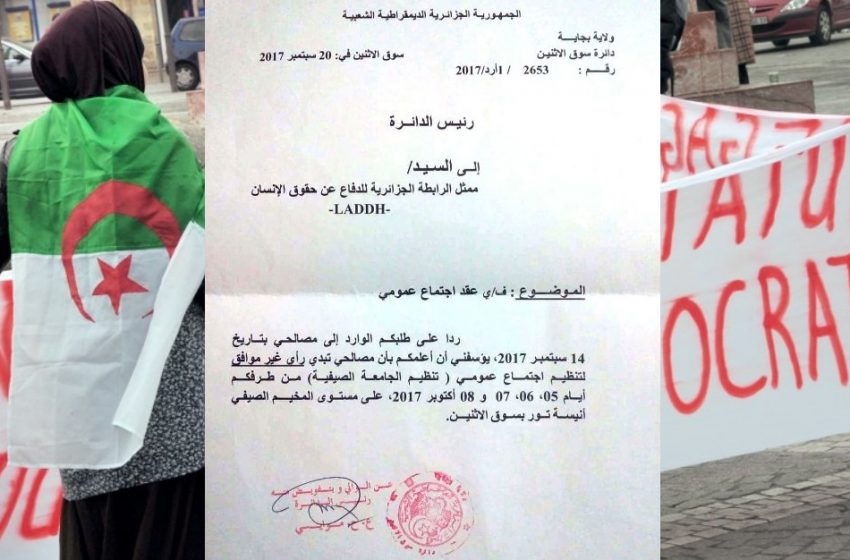 الجمهورية الجزائرية الديمقراطية الشعبية
ولاية بجاية
دائرة سوق الاثنين
سوق الاثنين في: 20 سبتمبر 2017
رقم : 2653 / أرد/2017
رئيس الدائرة
إلى السيد/
ممثل الرابطة الجزائرية للدفاع عن حقوق الإنسان
-LADDH-
الموضوع : ف/ي عقد اجتماع عمومي
ردا على طلبكم الوارد إلى مصالحي بتاريخ
14 سبتمبر 2017، يؤسفني أن أعلمكم بأن مصالحي تبدي رأي غير موافق
لتنظيم اجتماع عمومي ( تنظيم الجامعة الصيفية) من طرفكم
أيام 05، 06، 07 و 08 أكتوبر 2017، على مستوى المخيم الصيفي
أنيسة تور بسوق الاثنين.
عن الوالي و بتفويض منه
رئيس الدائرة
TATU
OCRAT